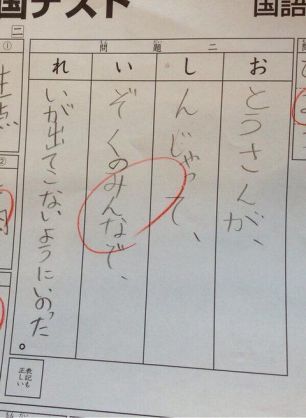 国テスト
国語
問題二
おとうさんが、
しんじゃって、
いぞくのみんなで、
れいが出てこないようにいのった。
表記も
正しい
二
①
②